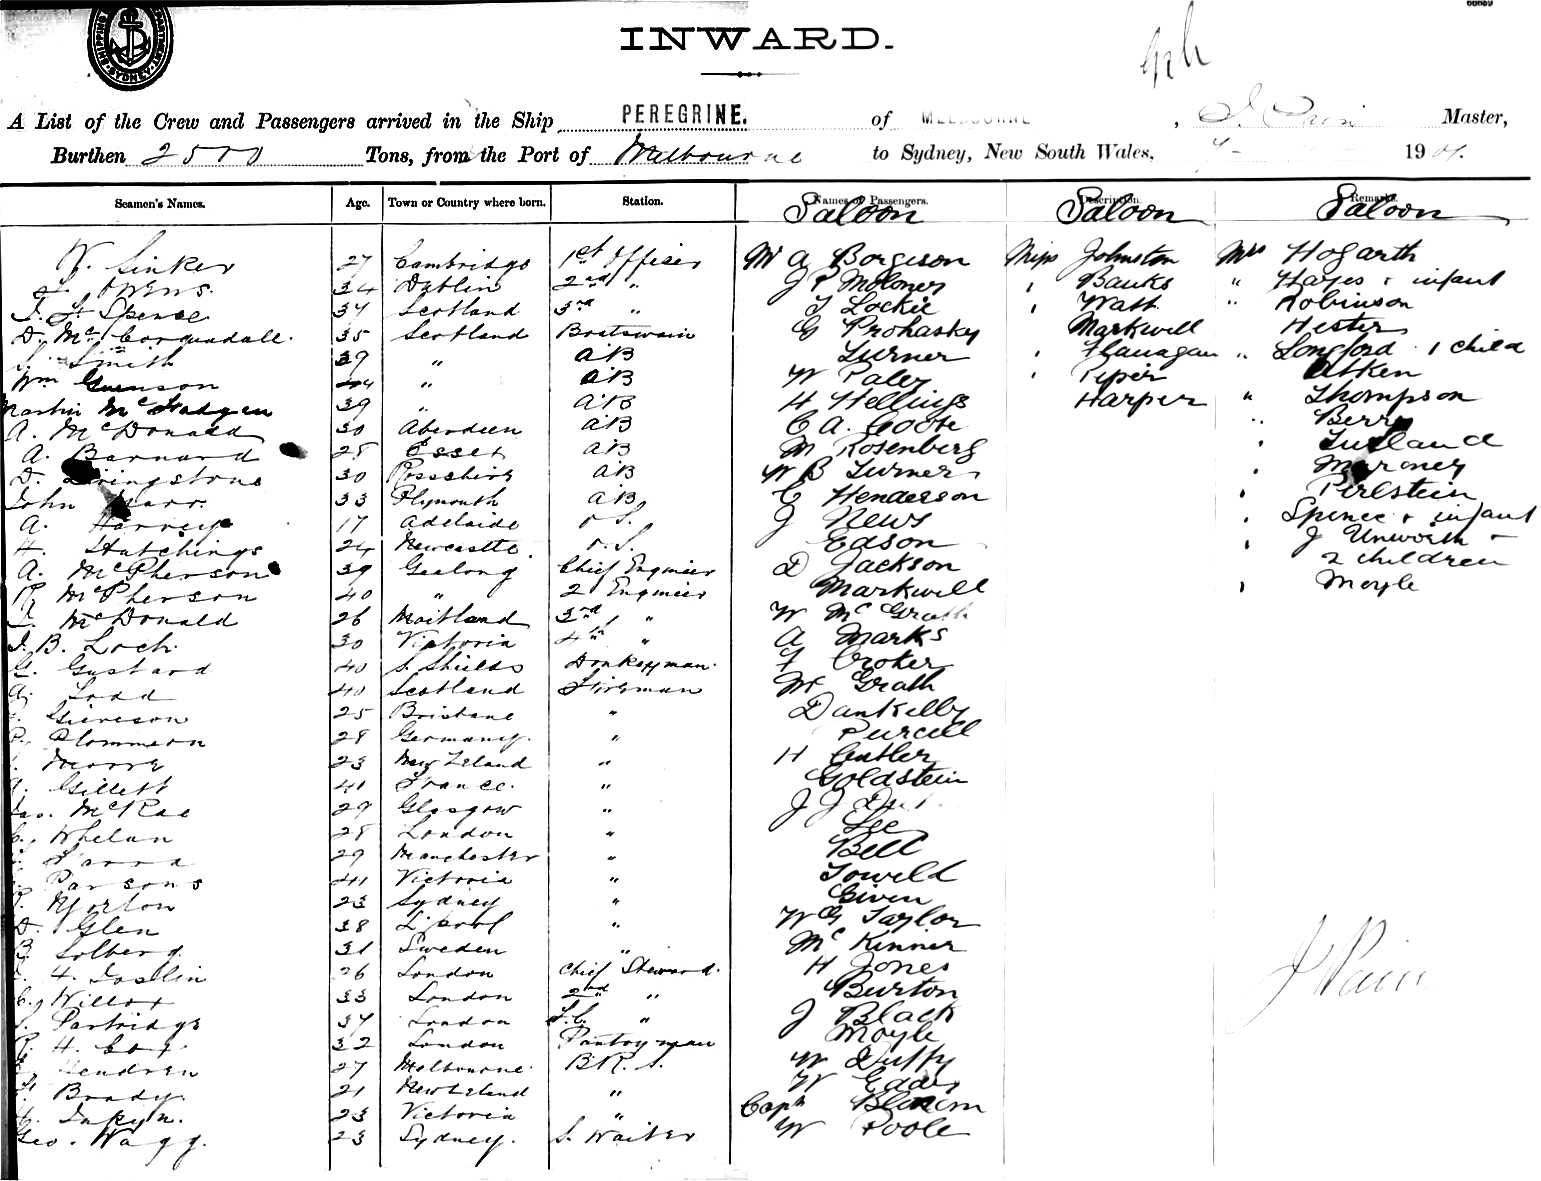 INWARD.
A List of the Crew and Passengers arrived in the Ship PEREGRINE. of MELBOURNE, Master,
Burthen 2500 Tons, from the Port of Melbourne to Sydney, New South Wales, 190
Seamen's Names. Age. Town or Country where born. Station. Names of Passengers. Description. Remarks.
Saloon Saloon Saloon
Sinker 27 Cambridge 1st Officer Mr A Borgeson Miss Johnston Mrs Hogarth
Owens. 34 Dublin 2nd " J P Moloney Banks " Hayes & infant
Spence 34 Scotland 3rd " Lockie Watt " Robinson
D. Mc Corquodale. 35 Scotland Boatswain G Prohasky Markwell Hester
Smith 39 " AB Turner Flanagan " Longford 1 child
Wm 44 " AB W Paley Piper Aitken
Martin 39 " AB H Hellings Harper " Thompson
A. McDonald 30 Aberdeen AB C A Berry
A. Barnard 28 Essex AB M Rosenberg
D. Livingstone 30 Rossshire AB W B Turner Maroney
John 33 Plymouth AB C Henderson Perlstein
A. Harvey 17 Adelaide O.S. J News Spence & infant
H. Hutchings 24 Newcastle. O.S. Eason J Unworth &
A. McPherson 39 Geelong Chief Engineer D Jackson 2 children
R. McPherson 40 " 2 Engineer Markwell Moyle
McDonald 26 Maitland 3rd " W McGrath
J. B. Loch. 30 Victoria 4th " A Marks
G. Gustard 40 S. Shields Donkeyman. F Croker
A. Todd 40 Scotland Fireman McGrath
Grierson 25 Brisbane " Dankelly
Plommeon 28 Germany. " Purcell
23 New Zeland " H Cutler
A. Gillett 41 France. " Goldstein
Jas. McRae 29 Glasgow " J J
C. Whelan 28 London " Lee
29 Manchester " Bell
Parsons 41 Victoria " Toweld
Morton 23 Sydney " Given
D. Glen 38 L'pool " W G Taylor
B. Solberg. 31 Sweden " McKinner
H. Joslin 26 London Chief Steward. H Jones
C. Willox 33 London 2nd " Burton
Partridge 37 London " J Black
H. Cox 32 London Pantryman Moyle
Hendren 27 Melbourne. B.R.S. W Duffy
Brady. 21 New Zeland " W Eades
23 Victoria " Capt
Geo. Wagg. 23 Sydney. S. Waiter W Poole